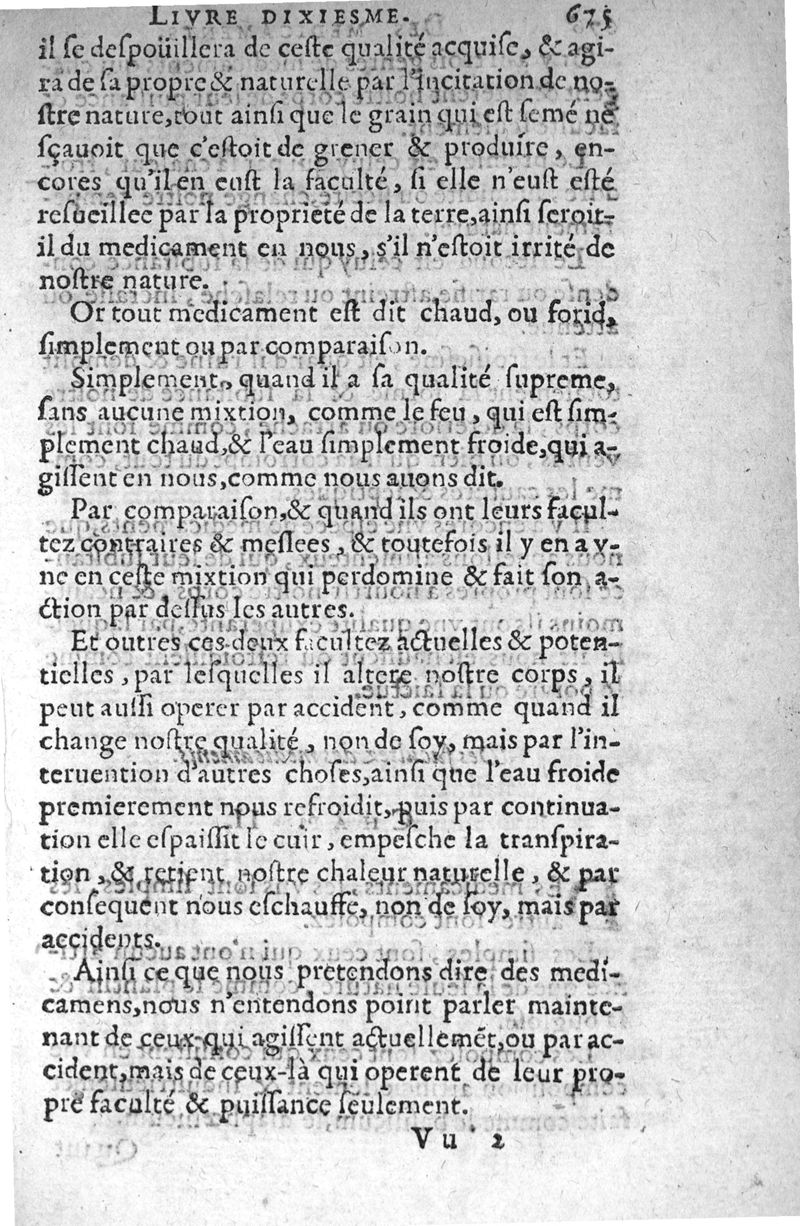 LIVRE DIXIESME. 675
il ſe deſpoüillera de ceſte qualité acquiſe, & agi-
ra de ſa propre & naturelle par l'incitation de no-
ſtre nature, tout ainſi que le grain qui eſt ſemé ne
ſçauoit que c'eſtoit de grener & produire, en-
cores qu'il en euſt la faculté, ſi elle n'euſt eſté
reſueillee par la proprieté de la terre, ainſi ſeroit-
il du medicament en nous, s'il n'eſtoit irrité de
noſtre nature.
Or tout medicament eſt dit chaud, ou forid,
ſimplement ou par comparaiſon.
Simplement, quand il a ſa qualité ſupreme,
ſans aucune mixtion, comme le feu, qui eſt ſim-
plement chaud, & l'eau ſimplement froide, qui a-
giſſent en nous, comme nous auons dit.
Par comparaiſon, & quand ils ont leurs facul-
tez contraires & meſlees, & toutefois il y en a v-
ne en ceſte mixtion qui perdomine & fait ſon a-
ction par deſſus les autres.
Et outres ces deux facultez actuelles & poten-
tielles, par leſquelles il altere noſtre corps, il
peut auſſi operer par accident, comme quand il
change noſtre qualité, non de ſoy, mais par l'in-
teruention d'autres choſes, ainſi que l'eau froide
premierement nous refroidit, puis par continua-
tion elle eſpaiſſit le cuir, empeſche la tranſpira-
tion, & retient noſtre chaleur naturelle, & par
conſequent nous eſchauffe, non de ſoy, mais par
accidents.
Ainſi ce que nous pretendons dire des medi-
camens, nous n'entendons point parler mainte-
nant de ceux-qui agiſſent actuellemēt, ou par ac-
cident, mais de ceux-là qui operent de leur pro-
pre faculté & puiſſance ſeulement.
Vu 2